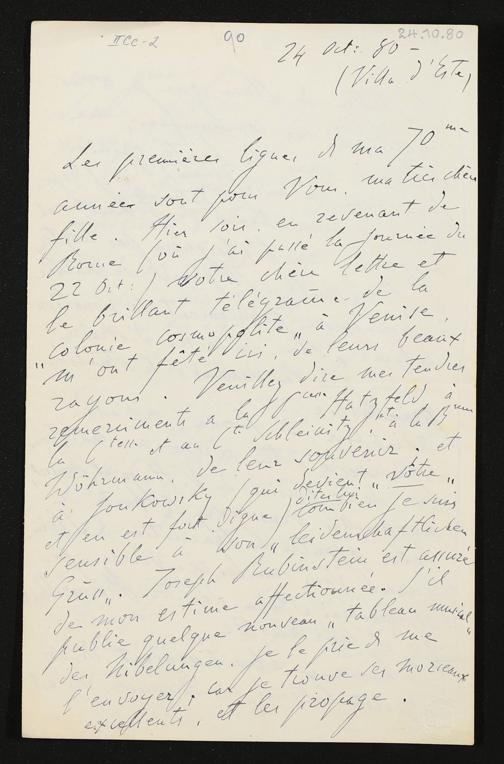 IICc-2 90 24.10.80
24 Oct: 80 -
(Villa d'Este)
Les premières lignes de ma 70me
année sont pour Vous, ma très chère
fille. Hier soir, en revenant de
Rome (où j'ai passé la journée du
22 Oct:) Votre chère lettre et
le brillant télégramme de la
"colonie cosmopolite" à Venise,
m'ont fêté ici, de leurs beaux
rayons. Veuillez dire mes tendres
remerciments a la Pcesse Hatzfeld, à
la Ctesse et au Cte Schleinitz, à la Bnne
Wöhrmann, de leur souvenir, et
à Joukowsky (qui devient "vôtre"
et en est fort digne) dites lui combien je suis
sensible à son "leidenschaftlichen
Gruss". Joseph Rubinstein est assuré
de mon estime affectionnée. S'il
publie quelque nouveau "tableau musical"
des Nibelungen, je le prie de me
l'envoyer, car je trouve ses morceaux
excellents, et les propage.